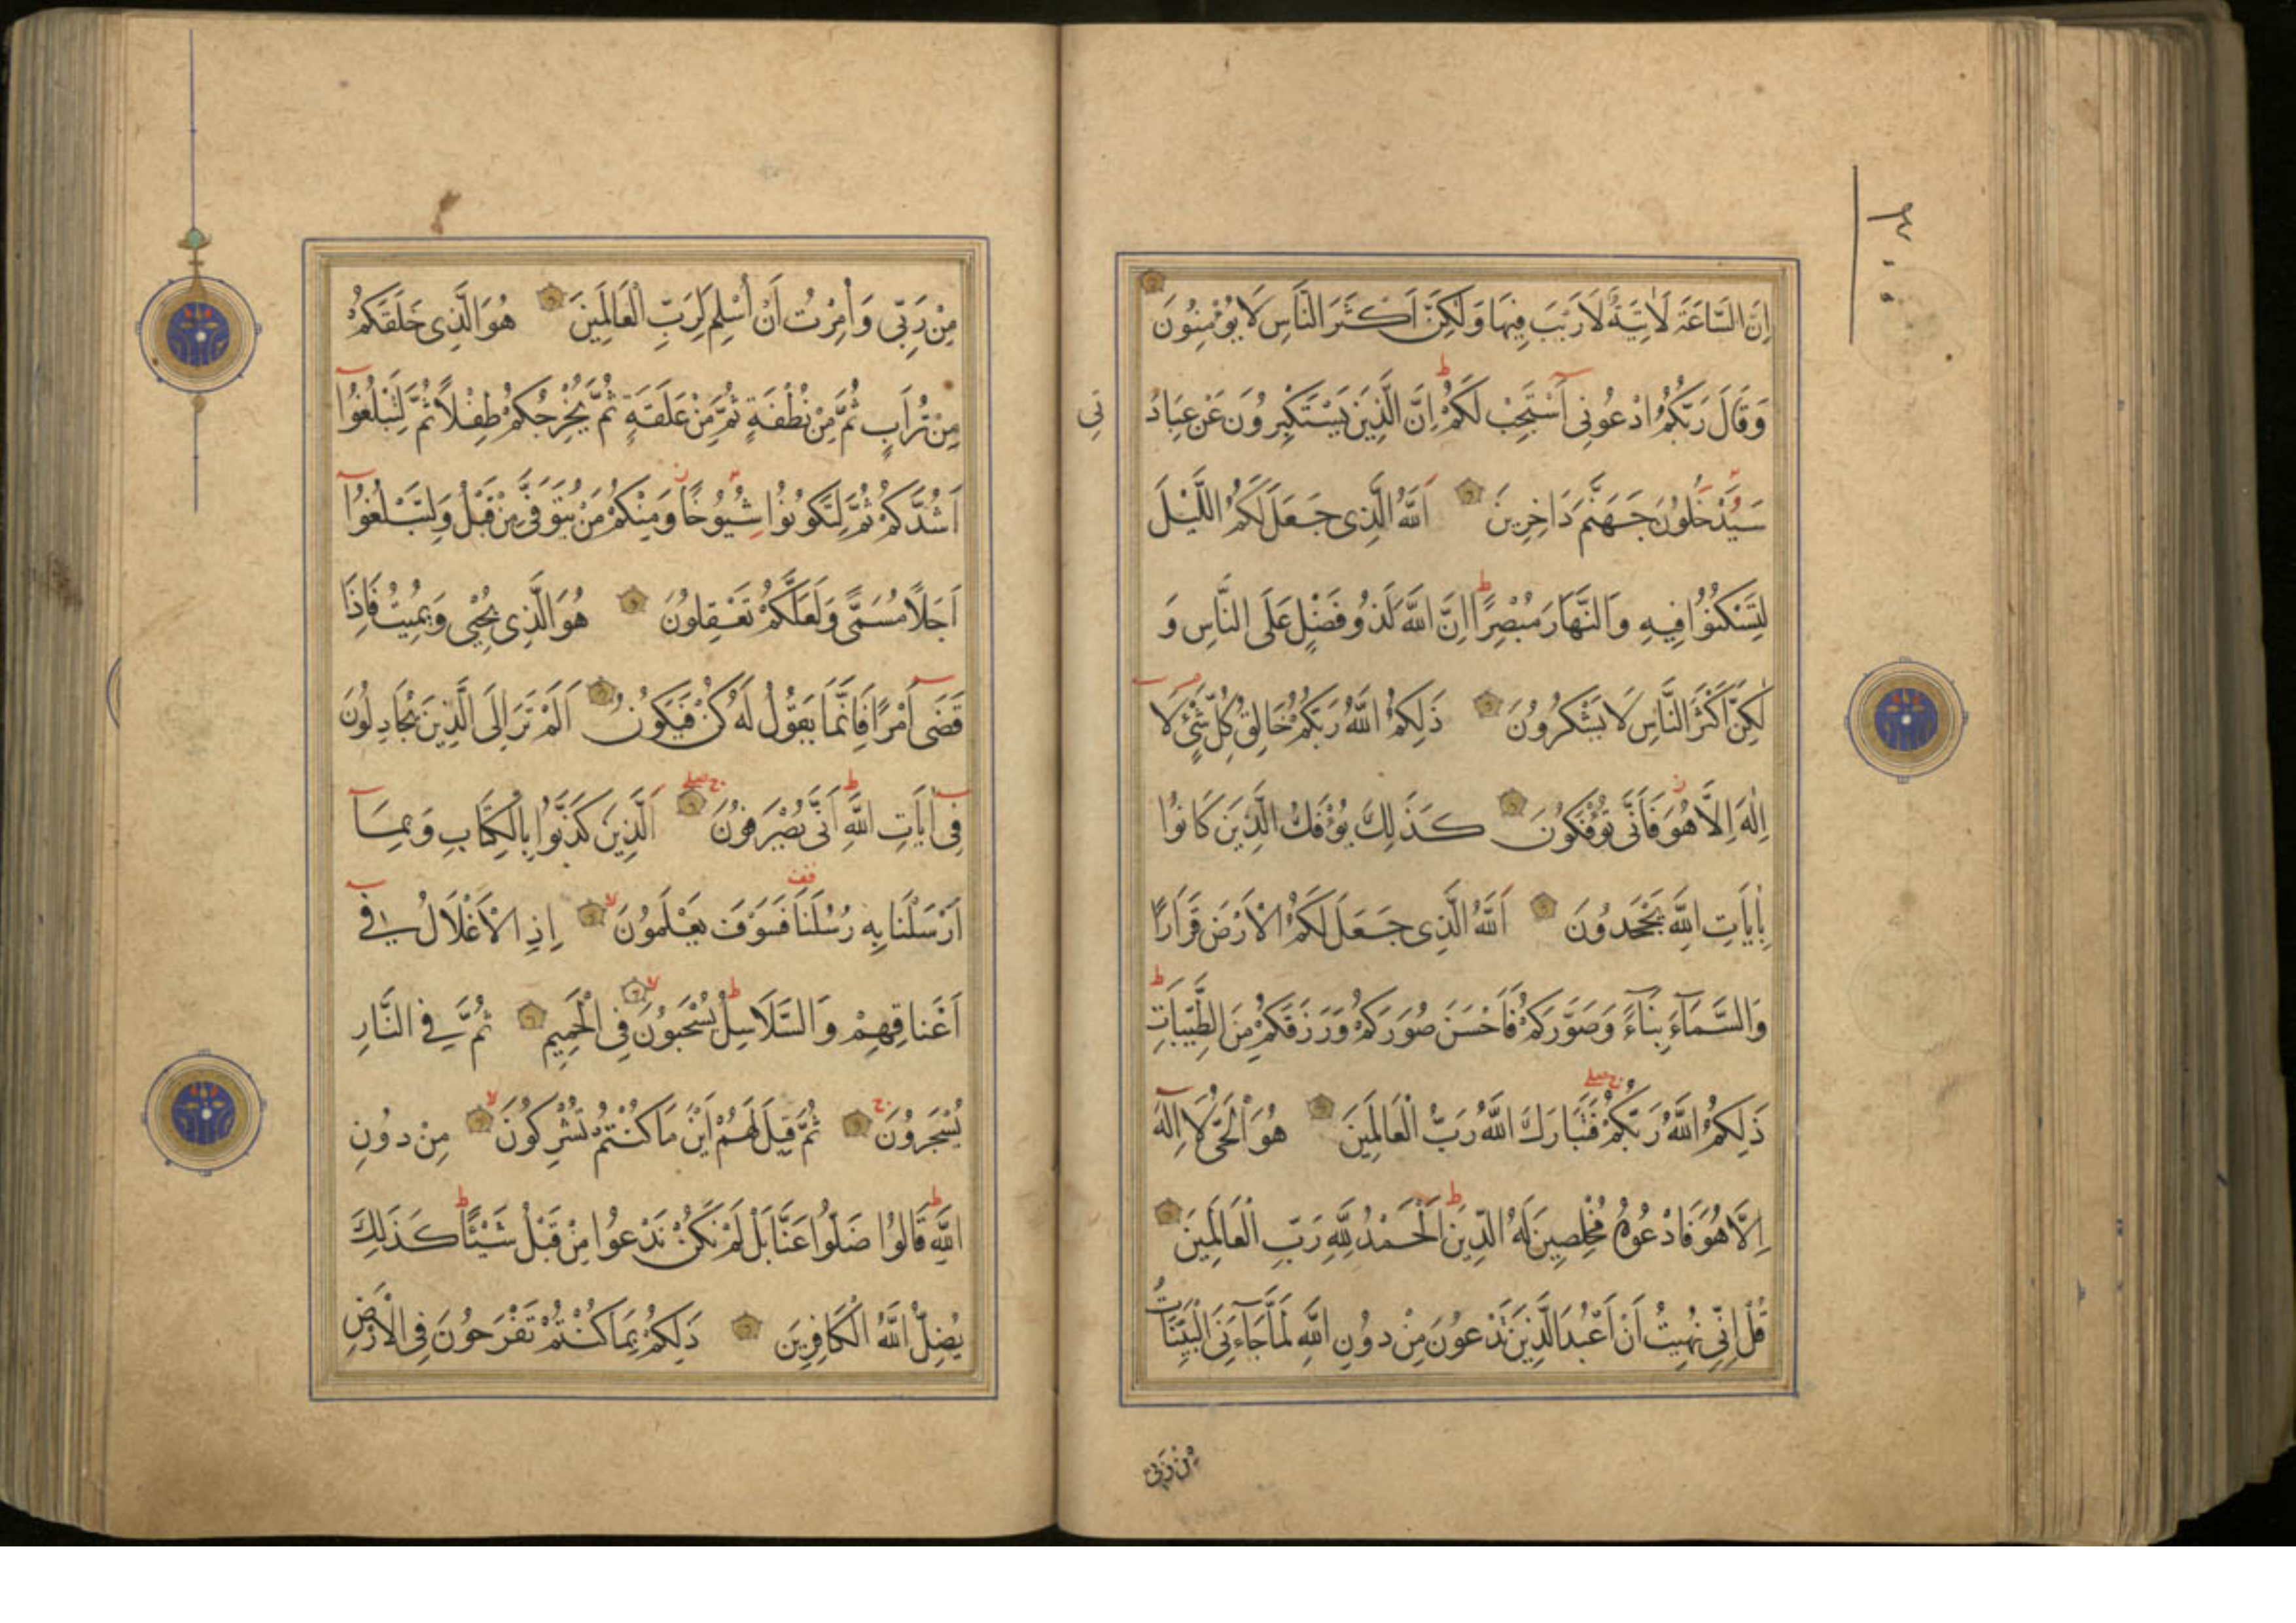 اِنَّ السَّاعَةَ لَاٰتِيَةٌ لَارَيْبَ فِيهَا وَلٰكِنَّ اَكْثَرَ النَّاسِ لَا يُؤْمِنُونَ
وَقَالَ رَبُّكُمُ ادْعُونِى اَسْتَجِبْ لَكُمْ ط اِنَّ الَّذِينَ يَسْتَكْبِرُونَ عَنْ عِبَادَ
تِى
سَيَدْخُلُونَ جَهَنَّمَ دَاخِرِينَ اَللّٰهُ الَّذِى جَعَلَ لَكُمُ اللَّيْلَ
لِتَسْكُنُوُا فِيهِ وَالنَّهَارَ مُبْصِرًا ط اِنَّ اللّٰهَ لَذُو فَضْلٍ عَلَى النَّاسِ وَ
لٰكِنَّ اَكْثَرَ النَّاسِ لَا يَشْكُرُونَ ذَلِكُمُ اللّٰهُ رَبُّكُمْ خَالِقُ كُلِّ شَئٍْ لَا
اِلٰهَ اِلَّا هُوَ فَاَنَّى تُؤْفَكُونَ كَذَلِكَ يُؤْفَكُ الَّذِينَ كَانُوا
بِاٰيَاتِ اللّٰهِ يَجْحَدُونَ اَللّٰهُ الَّذِى جَعَلَ لَكُمُ الْاَرْضَ قَرَارًا
وَالسَّمَآءَ بِنَاءً وَصَوَّرَكُمْ فَاَحْسَنَ صُوَرَكُمْ وَرَزَقَكُمْ مِنَ الطَّيِّبَاتِ ط
ذَلِكُمُ اللّٰهُ رَبُّكُمْ فَتَبَارَكَ اللّٰهُ رَبُّ الْعَالَمِينَ هُوَ الْحَىُّ لَا اِلٰهَ
اِلَّا هُوَ فَادْعُوهُ مُخْلِصِينَ لَهُ الدِّينَ ط اَلْحَمْدُ لِلّٰهِ رَبِّ الْعَالَمِينَ
قُلْ اِنِّى نُهِيتُ اَنْ اَعْبُدَ الَّذِينَ تَدْعُونَ مِنْ دُونِ اللّٰهِ لَمَّا جَآءَنِىَ الْبَيِّنَاتُ
مِنْ رَبِّى
مِنْ رَبِّى وَاُمِرْتُ اَنْ اُسْلِمَ لِرَبِّ الْعَالَمِينَ هُوَ الَّذِى خَلَقَكُمْ
مِنْ تُرَابٍ ثُمَّ مِنْ نُطْفَةٍ ثُمَّ مِنْ عَلَقَةٍ ثُمَّ يُخْرِجُكُمْ طِفْلًا ثُمَّ لِتَبْلُغُوُا
اَشُدَّكُمْ ثُمَّ لِتَكُونُوا شُيُوخًا وَمِنْكُمْ مَنْ يُتَوَفَّى مِنْ قَبْلُ وَلِتَبْلُغُوُا
اَجَلًا مُسَمًّى وَلَعَلَّكُمْ تَعْقِلُونَ هُوَ الَّذِى يُحْيِى وَيُمِيتُ فَاِذَا
قَضَى اَمْرًا فَاِنَّمَا يَقُولُ لَهُ كُنْ فَيَكُونُ اَلَمْ تَرَ اِلَى الَّذِينَ يُجَادِلُونَ
فِى اٰيَاتِ اللّٰهِ ط اَنَّى يُصْرَفُونَ اَلَّذِينَ كَذَّبُوا بِالْكِتَابِ وَبِمَآ
اَرْسَلْنَا بِهِ رُسُلَنَا قف فَسَوْفَ يَعْلَمُونَ لا اِذِ الْاَغْلَالُ فِى
اَعْنَاقِهِمْ وَالسَّلَاسِلُ ط يُسْحَبُونَ لا فِى الْحَمِيمِ ثُمَّ فِى النَّارِ
يُسْجَرُونَ ج ثُمَّ قِيلَ لَهُمْ اَيْنَ مَا كُنْتُمْ تُشْرِكُونَ لا مِنْ دُونِ
اللّٰهِ ط قَالُوا ضَلُّوا عَنَّا بَلْ لَمْ نَكُنْ نَدْعُوا مِنْ قَبْلُ شَيْئًا ط كَذَلِكَ
يُضِلُّ اللّٰهُ الْكَافِرِينَ ذَلِكُمْ بِمَا كُنْتُمْ تَفْرَحُونَ فِى الْاَرْضِ